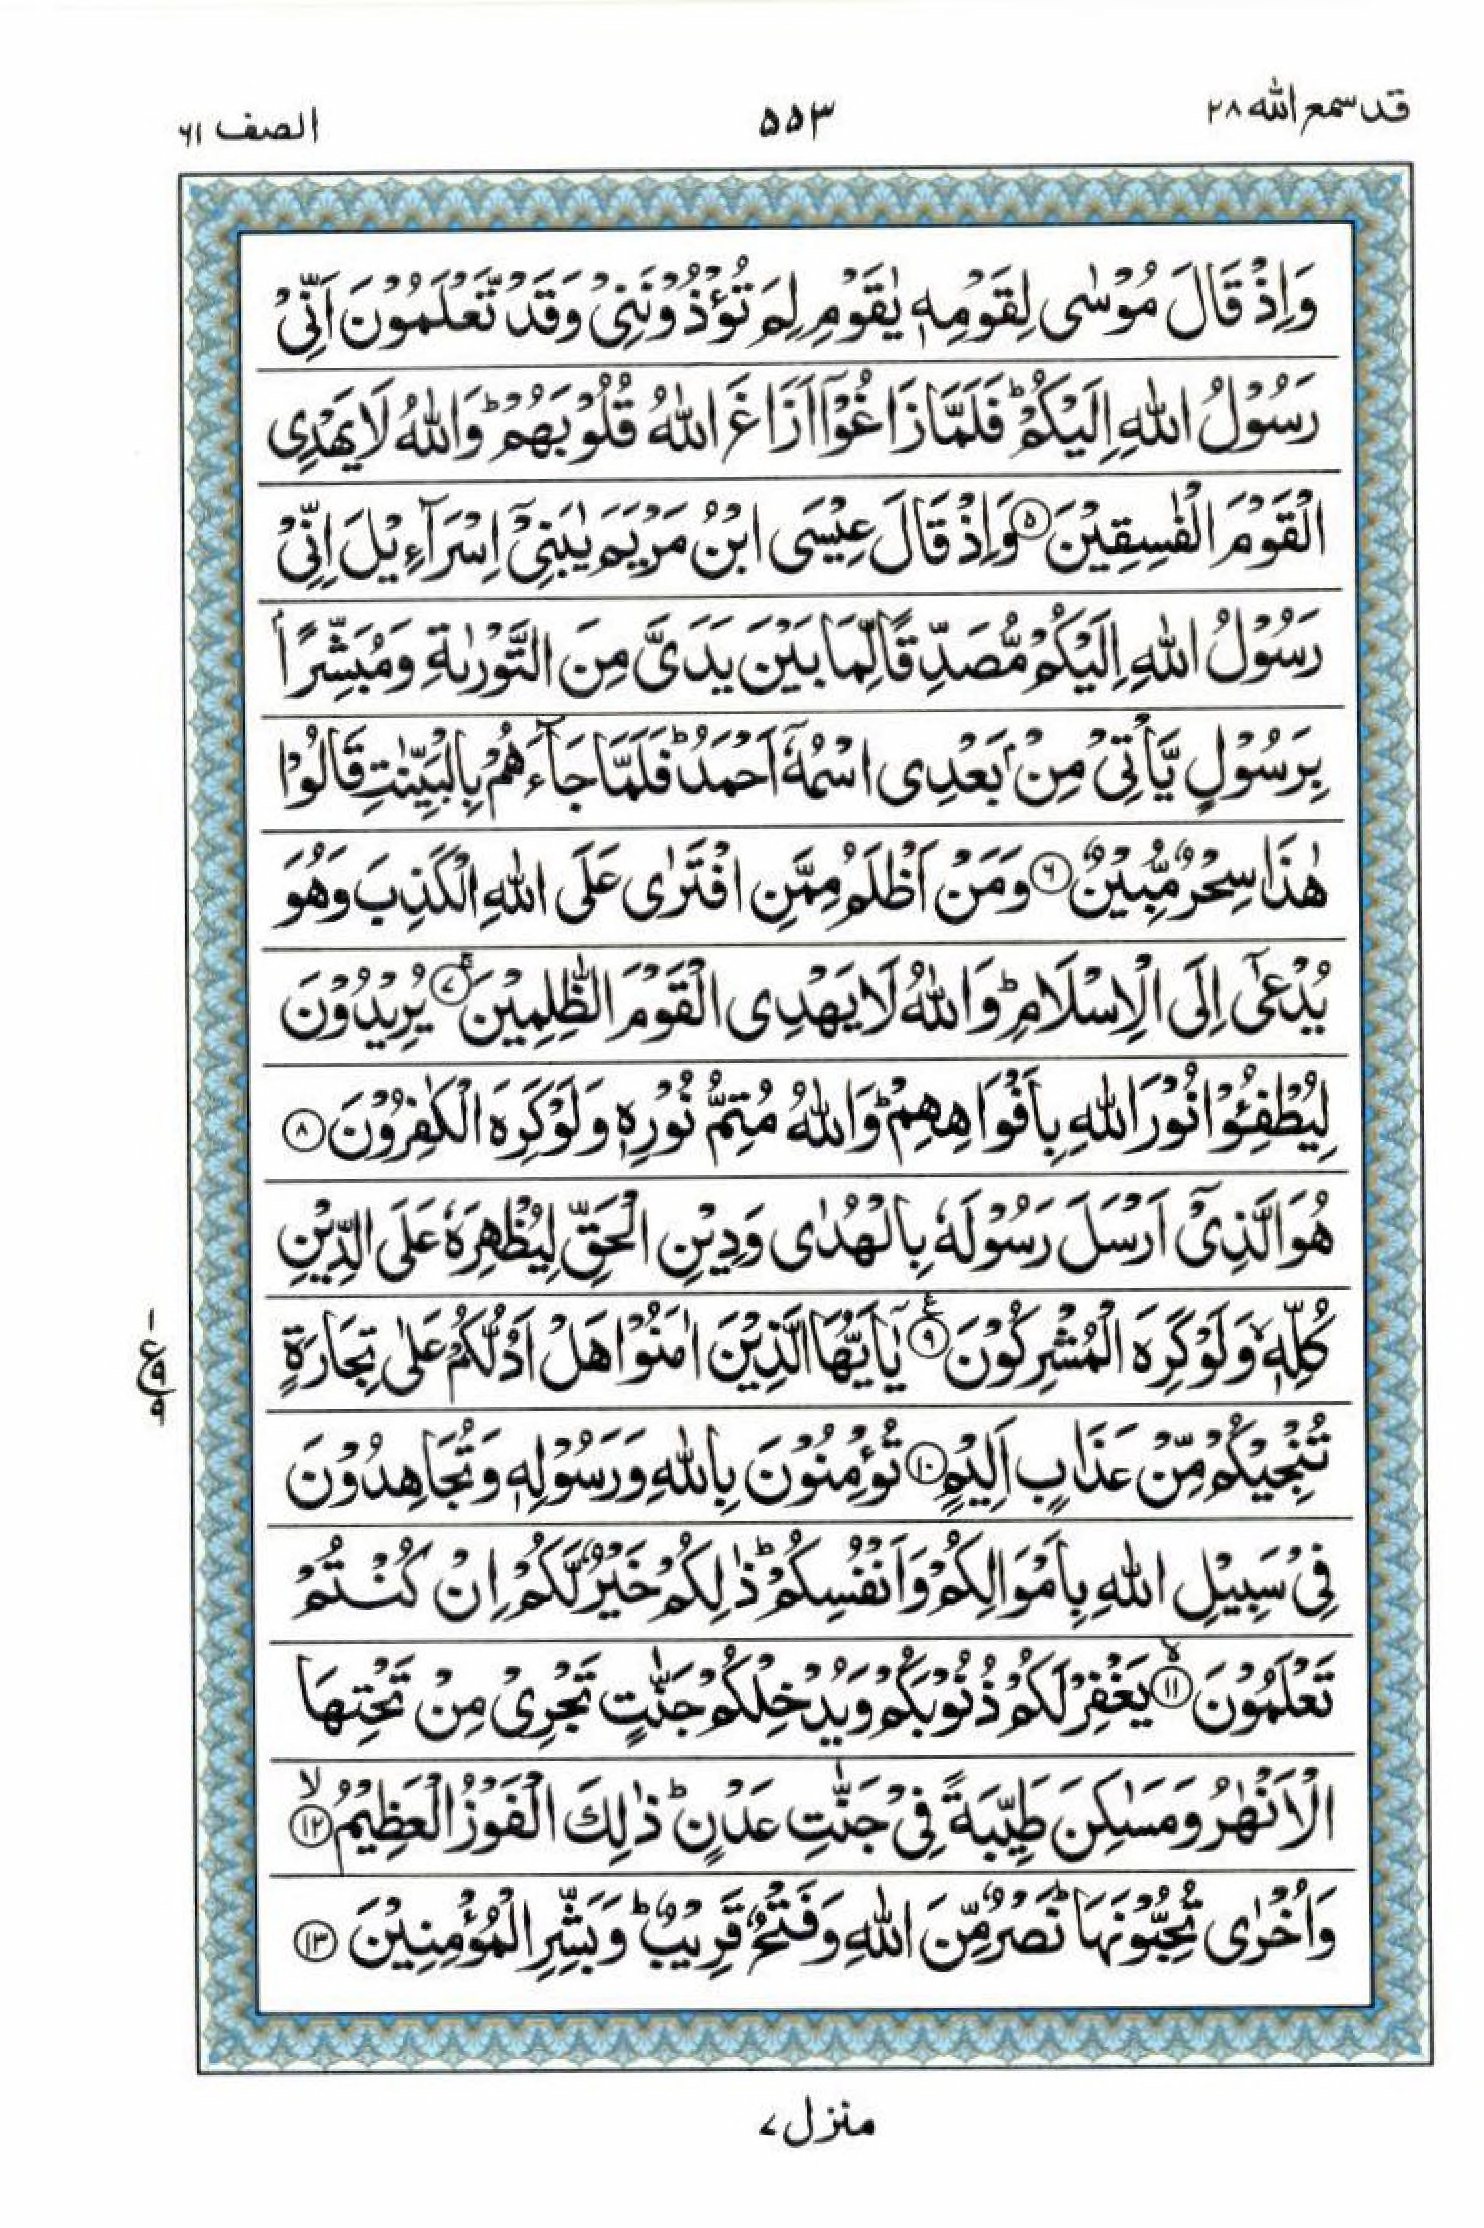 قد سمع الله ٢٨
٥٥٣
الصف ٦١
وَاِذْ قَالَ مُوْسٰى لِقَوْمِهٖ يٰقَوْمِ لِمَ تُؤْذُوْنَنِيْ وَقَدْ تَّعْلَمُوْنَ اَنِّيْ
رَسُوْلُ اللّٰهِ اِلَيْكُمْ ؕ فَلَمَّا زَاغُوْۤا اَزَاغَ اللّٰهُ قُلُوْبَهُمْ ؕ وَاللّٰهُ لَا يَهْدِى
الْقَوْمَ الْفٰسِقِيْنَ ۝٥ وَاِذْ قَالَ عِيْسَى ابْنُ مَرْيَمَ يٰبَنِيْۤ اِسْرَآءِيْلَ اِنِّيْ
رَسُوْلُ اللّٰهِ اِلَيْكُمْ مُّصَدِّقًا لِّمَا بَيْنَ يَدَيَّ مِنَ التَّوْرٰىةِ وَمُبَشِّرًاۢ
بِرَسُوْلٍ يَّاْتِيْ مِنْۢ بَعْدِى اسْمُهٗۤ اَحْمَدُ ؕ فَلَمَّا جَآءَهُمْ بِالْبَيِّنٰتِ قَالُوْا
هٰذَا سِحْرٌ مُّبِيْنٌ ۝٦ وَمَنْ اَظْلَمُ مِمَّنِ افْتَرٰى عَلَى اللّٰهِ الْكَذِبَ وَهُوَ
يُدْعٰۤى اِلَى الْاِسْلَامِ ؕ وَاللّٰهُ لَا يَهْدِى الْقَوْمَ الظّٰلِمِيْنَ ۚ۝٧ يُرِيْدُوْنَ
لِيُطْفِـُٔوْا نُوْرَ اللّٰهِ بِاَفْوَاهِهِمْ ؕ وَاللّٰهُ مُتِمُّ نُوْرِهٖ وَلَوْ كَرِهَ الْكٰفِرُوْنَ ۝٨
هُوَ الَّذِيْۤ اَرْسَلَ رَسُوْلَهٗ بِالْهُدٰى وَدِيْنِ الْحَقِّ لِيُظْهِرَهٗ عَلَى الدِّيْنِ
كُلِّهٖ ۙ وَلَوْ كَرِهَ الْمُشْرِكُوْنَ ۝٩ ع يٰۤاَيُّهَا الَّذِيْنَ اٰمَنُوْا هَلْ اَدُلُّكُمْ عَلٰى تِجَارَةٍ
١ ع ٩ ٩
تُنْجِيْكُمْ مِّنْ عَذَابٍ اَلِيْمٍ ۝١٠ تُؤْمِنُوْنَ بِاللّٰهِ وَرَسُوْلِهٖ وَتُجَاهِدُوْنَ
فِيْ سَبِيْلِ اللّٰهِ بِاَمْوَالِكُمْ وَاَنْفُسِكُمْ ؕ ذٰلِكُمْ خَيْرٌ لَّكُمْ اِنْ كُنْتُمْ
تَعْلَمُوْنَ ۙ۝١١ يَغْفِرْ لَكُمْ ذُنُوْبَكُمْ وَيُدْخِلْكُمْ جَنّٰتٍ تَجْرِيْ مِنْ تَحْتِهَا
الْاَنْهٰرُ وَمَسٰكِنَ طَيِّبَةً فِيْ جَنّٰتِ عَدْنٍ ؕ ذٰلِكَ الْفَوْزُ الْعَظِيْمُ ۙ۝١٢
وَاُخْرٰى تُحِبُّوْنَهَا ؕ نَصْرٌ مِّنَ اللّٰهِ وَفَتْحٌ قَرِيْبٌ ؕ وَبَشِّرِ الْمُؤْمِنِيْنَ ۝١٣
منزل ٧